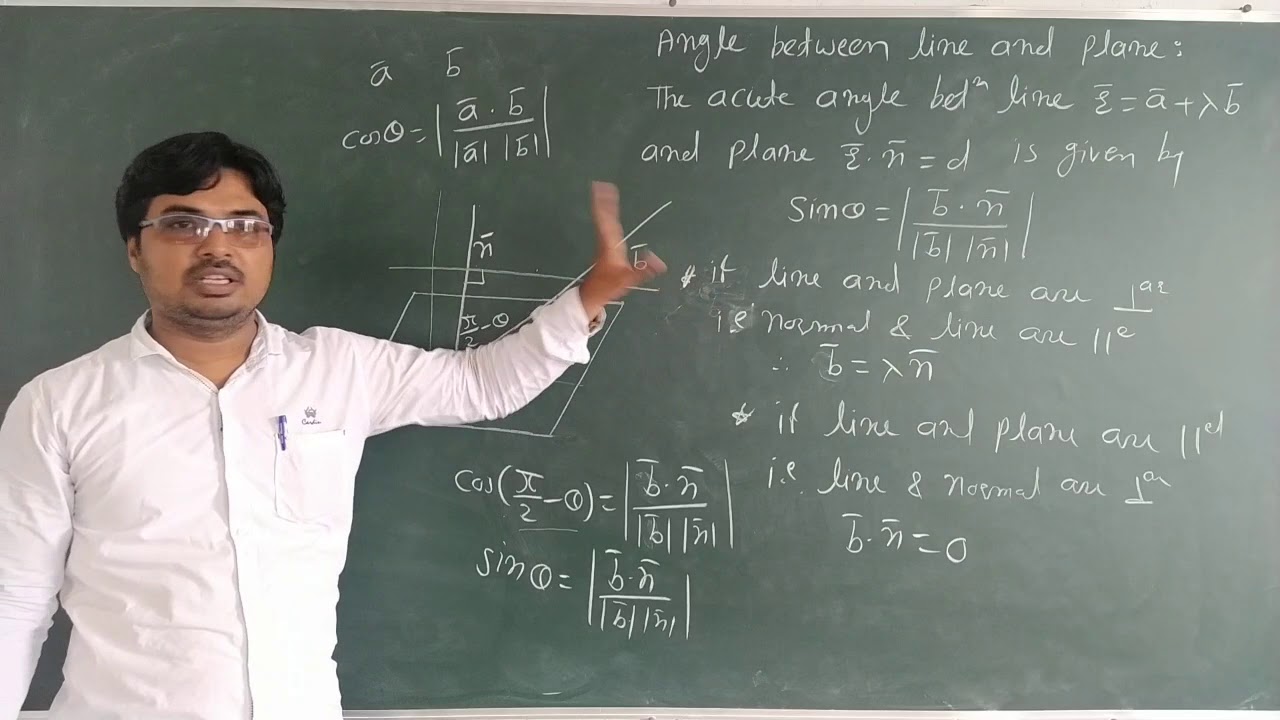 ā b̄
cosθ = | ā · b̄ / |ā| |b̄| |
n̄
b̄
π/2 - θ
cos(π/2 - θ) = | b̄ · n̄ / |b̄| |n̄| |
sinθ = | b̄ · n̄ / |b̄| |n̄| |
Angle between line and plane:
The acute angle betⁿ line r̄ = ā + λb̄
and plane r̄ · n̄ = d is given by
Sinθ = | b̄ · n̄ / |b̄| |n̄| |
* if line and plane are ⊥ᵃʳ
i.e normal & line are ||ᵉ
∴ b̄ = λn̄
* if line and plane are ||ᵉˡ
i.e. line & normal are ⊥ᵃʳ
b̄ · n̄ = 0